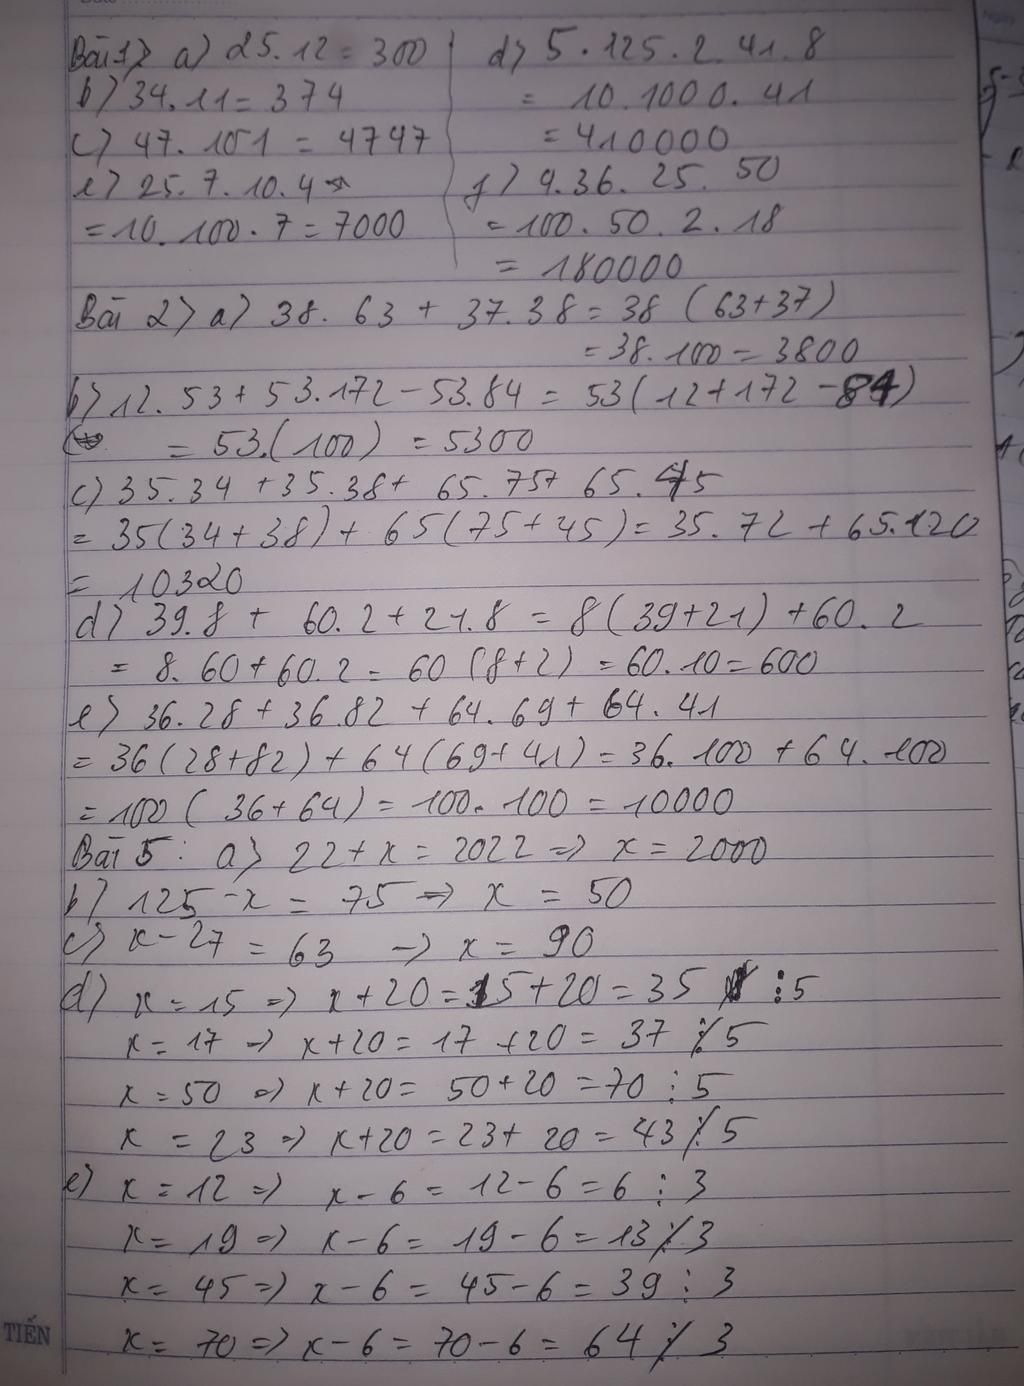 Bài 1> a) 25.12 = 300
b) 34.11 = 374
c) 47.101 = 4747
e) 25.7.10.4
= 10.100.7 = 7000
d) 5.125.2.41.8
= 10.1000.41
= 410000
f) 4.36.25.50
= 100.50.2.18
= 180000
Bài 2> a) 38.63 + 37.38 = 38 (63+37)
= 38.100 = 3800
b) 12.53 + 53.172 - 53.84 = 53(12+172-84)
= 53.(100) = 5300
c) 35.34 + 35.38 + 65.75 + 65.45
= 35(34+38) + 65(75+45) = 35.72 + 65.120
= 10320
d) 39.8 + 60.2 + 21.8 = 8(39+21) + 60.2
= 8.60 + 60.2 = 60 (8+2) = 60.10 = 600
e) 36.28 + 36.82 + 64.69 + 64.41
= 36(28+82) + 64(69+41) = 36.100 + 64.100
= 100(36+64) = 100.100 = 10000
Bài 5: a) 22+x = 2022 => x = 2000
b) 125-x = 75 => x = 50
c) x-27 = 63 => x = 90
d) x = 15 => x+20 = 15+20 = 35 ⋮ 5
x = 17 => x+20 = 17+20 = 37 ⋮̸ 5
x = 50 => x+20 = 50+20 = 70 ⋮ 5
x = 23 => x+20 = 23+20 = 43 ⋮̸ 5
e) x = 12 => x-6 = 12-6 = 6 ⋮ 3
x = 19 => x-6 = 19-6 = 13 ⋮̸ 3
x = 45 => x-6 = 45-6 = 39 ⋮ 3
TIẾN
x = 70 => x-6 = 70-6 = 64 ⋮̸ 3